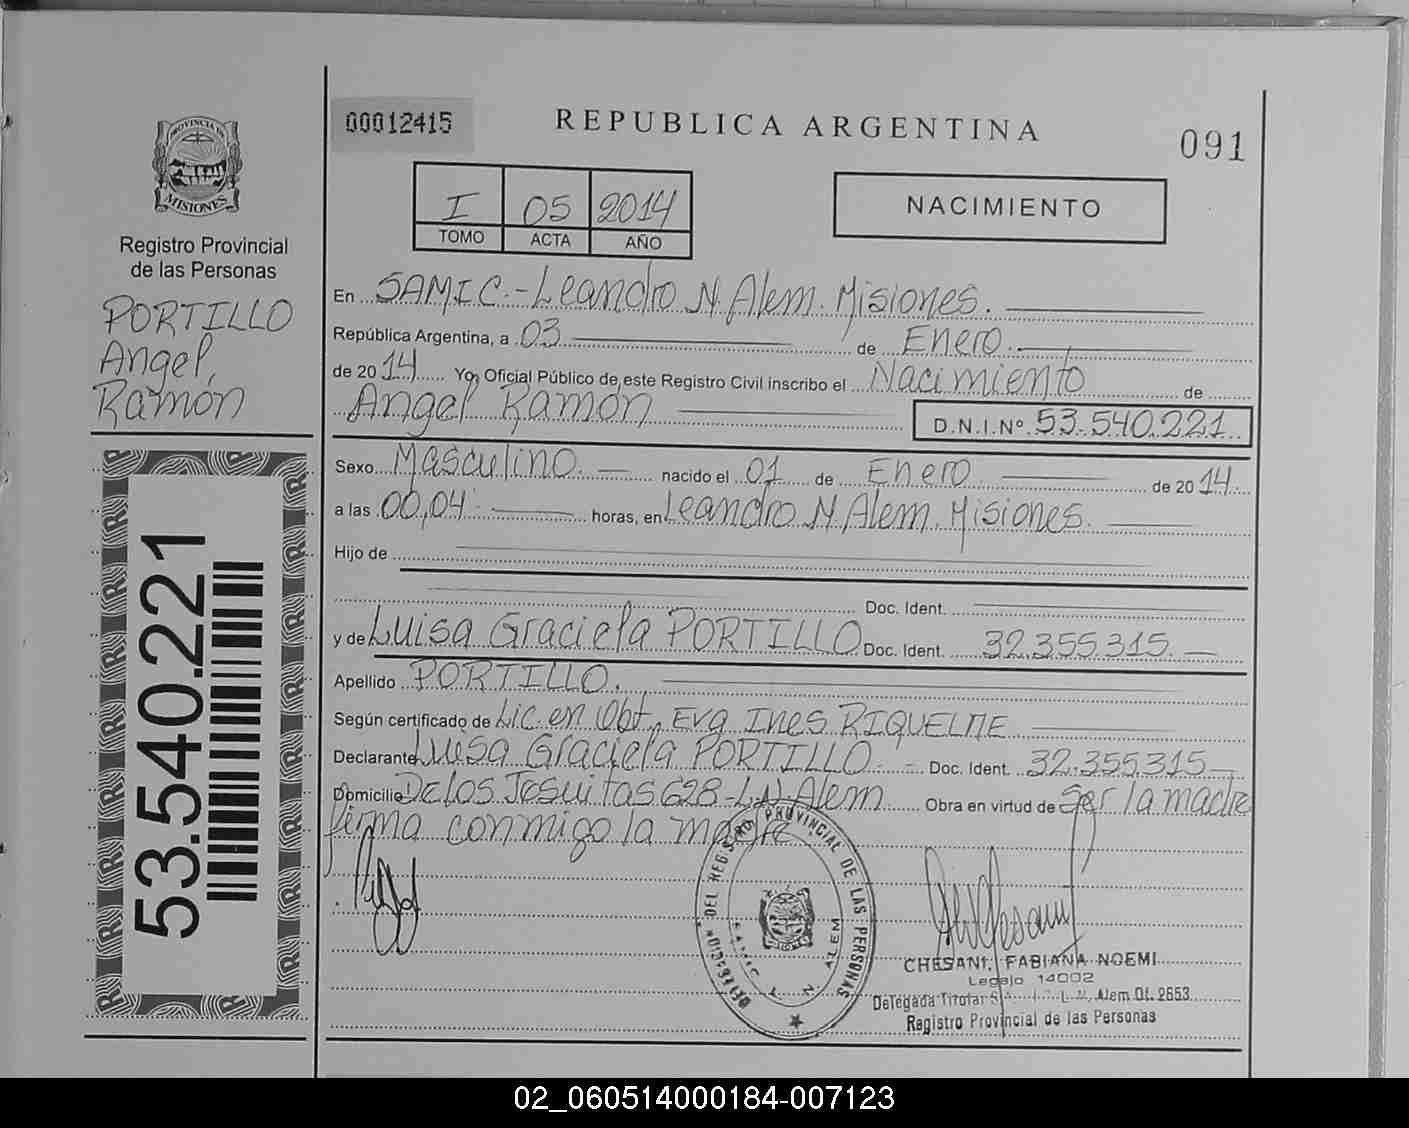 PROVINCIA DE
MISIONES
Registro Provincial
de las Personas
PORTILLO
Angel
Ramón
53.540.221
00012415
REPUBLICA ARGENTINA
091
I 05 2014
TOMO ACTA AÑO
NACIMIENTO
En SAMIC.-Leandro N. Alem. Misiones.
República Argentina, a 03 de Enero.
de 2014 Yo, Oficial Público de este Registro Civil inscribo el Nacimiento de
Angel Ramón D.N.I.Nº 53.540.221
Sexo Masculino. nacido el 01 de Enero de 2014.
a las 00,04 horas, en Leandro N Alem. Misiones.
Hijo de
Doc. Ident.
y de Luisa Graciela PORTILLO Doc. Ident. 32.355.315.
Apellido PORTILLO.
Según certificado de Lic. en Obt. Eva Ines RIQUELME
Declarante Luisa Graciela PORTILLO. Doc. Ident. 32.355.315
Domicilio De los Jesuitas 628-L.N.Alem Obra en virtud de ser la madre
firma conmigo la madre
DEL REGISTRO PROVINCIAL DE LAS PERSONAS
SAMIC L. N. ALEM
CHESANI, FABIANA NOEMI
Legajo 14002
Delegada Titular L.N. Alem Of. 2653
Registro Provincial de las Personas
02_060514000184-007123